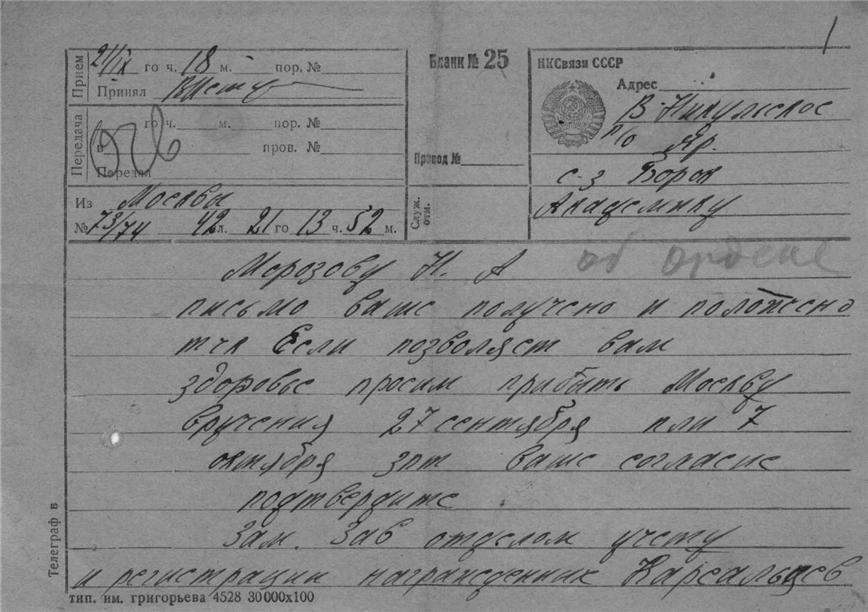 1
Прием 21/IX го ч. 18 м. пор. №
Принял
Бланк № 25
НКСвязи СССР
Адрес
В-Никульское
п/о Яр.
с-з Борок
Академику
Передача го ч. м. пор. №
в пров. №
Передал
Провод №
Из Москвы
№ 73/74 42 л. 21 го 13 ч. 52 м.
Служ. отм.
Морозову Н. А
об ордене
письмо ваше получено и положено
тчк Если позволяет вам
здоровье просим прибыть Москву
вручения 27 сентября или 7
октября зпт ваше согласие
подтвердите
Зам. Зав отделом учету
и регистрации награжденник
Телеграф в
тип. им. григорьева 4528 30000х100